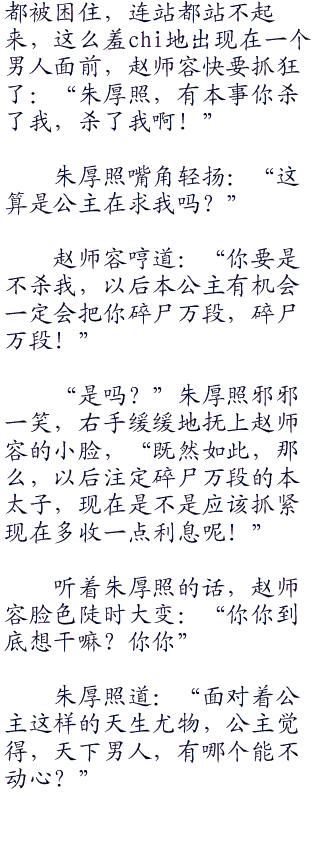 都被困住，连站都站不起
来，这么羞chi地出现在一个
男人面前，赵师容快要抓狂
了：“朱厚照，有本事你杀
了我，杀了我啊！”
朱厚照嘴角轻扬：“这
算是公主在求我吗？”
赵师容哼道：“你要是
不杀我，以后本公主有机会
一定会把你碎尸万段，碎尸
万段！”
“是吗？”朱厚照邪邪
一笑，右手缓缓地抚上赵师
容的小脸，“既然如此，那
么，以后注定碎尸万段的本
太子，现在是不是应该抓紧
现在多收一点利息呢！”
听着朱厚照的话，赵师
容脸色陡时大变：“你你到
底想干嘛？你你”
朱厚照道：“面对着公
主这样的天生尤物，公主觉
得，天下男人，有哪个能不
动心？”